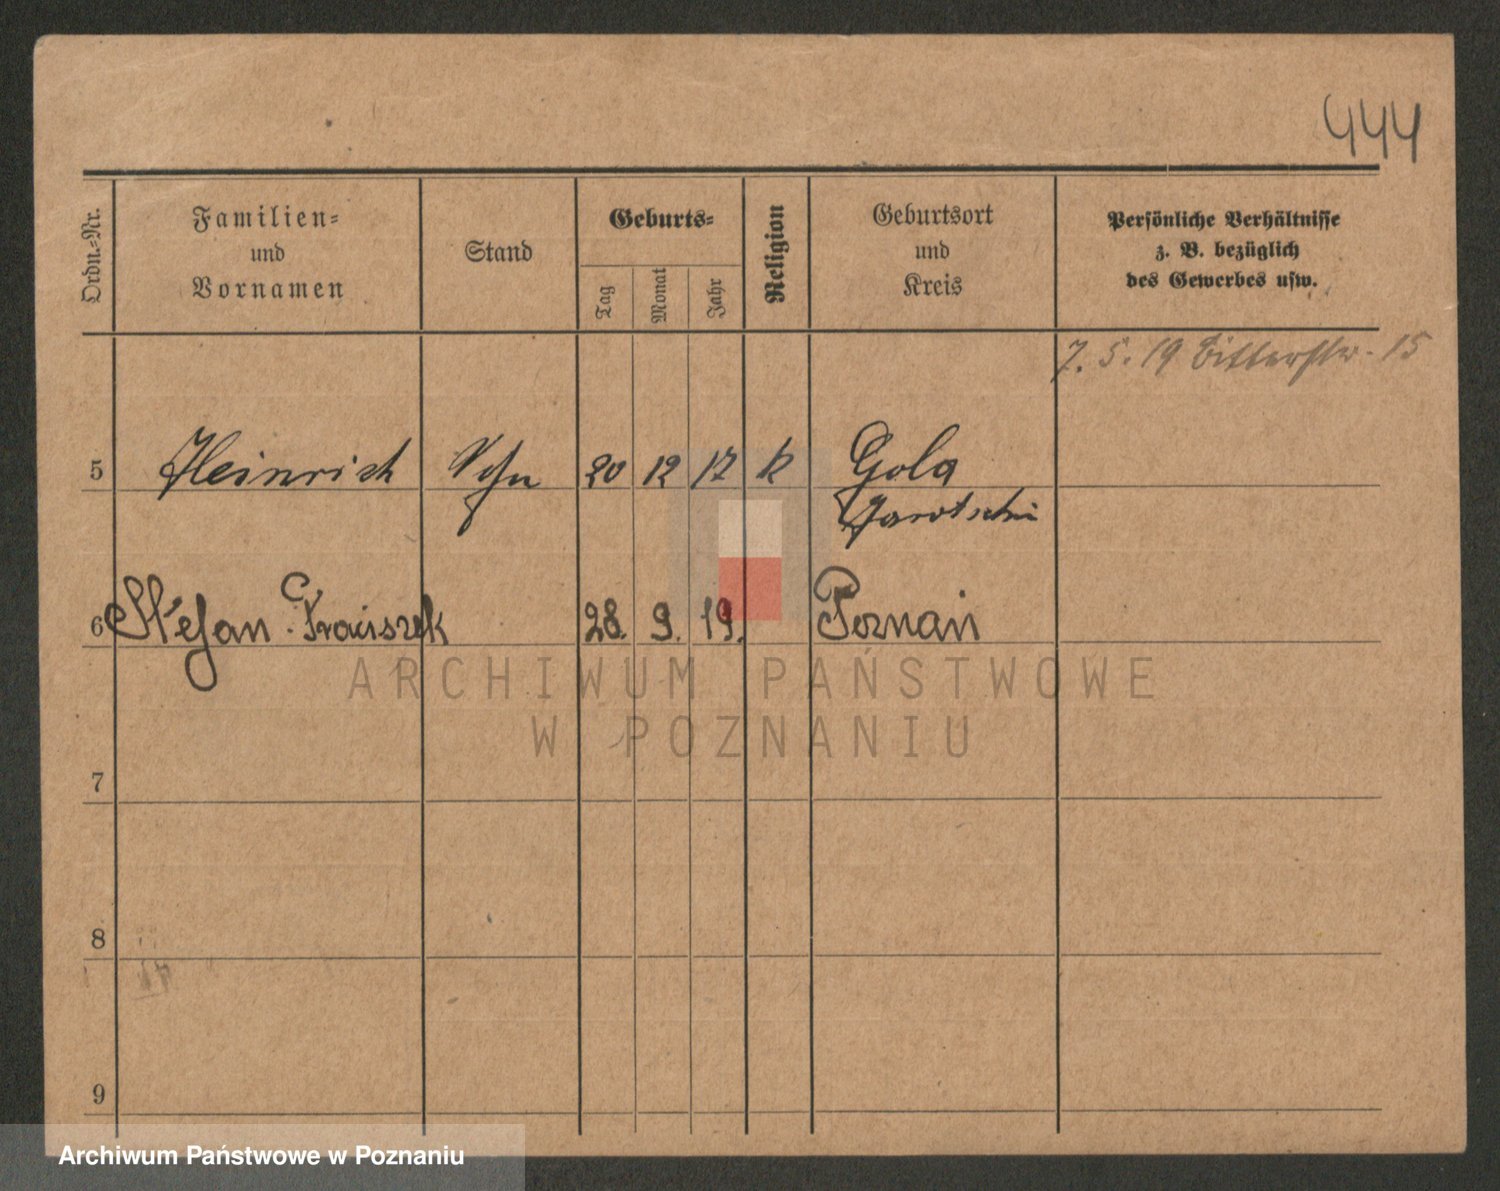 444
Ordn.-Nr.
Familien-
und
Vornamen
Stand
Geburts-
Tag
Monat
Jahr
Religion
Geburtsort
und
Kreis
Persönliche Verhältnisse
z. B. bezüglich
des Gewerbes usw.
7. 5. 19 Ritterstr. 15
5 Heinrich Sohn 20 12 17 k Gola
Jarotschin
6 Stefan Franciszek 28. 9. 19. Poznań
ARCHIWUM PAŃSTWOWE
W POZNANIU
7
8
9
Archiwum Państwowe w Poznaniu